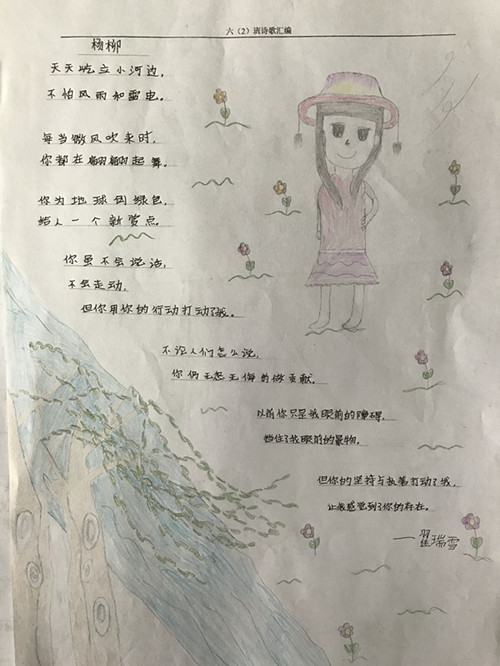 六（2）班诗歌汇编
杨柳
天天屹立小河边，
不怕风雨和雷电。
每当微风吹来时，
你都在翩翩起舞。
你为地球倒绿色，
给人一个新赏点。
你虽不会说话，
不会走动，
但你用你的行动打动了我。
不论人们怎么说，
你仍无怨无悔的做贡献。
以前你只是我眼前的障碍，
挡住了我眼前的景物，
但你的坚持与执着打动了我，
让我感觉到了你的存在。
——翟瑞雪